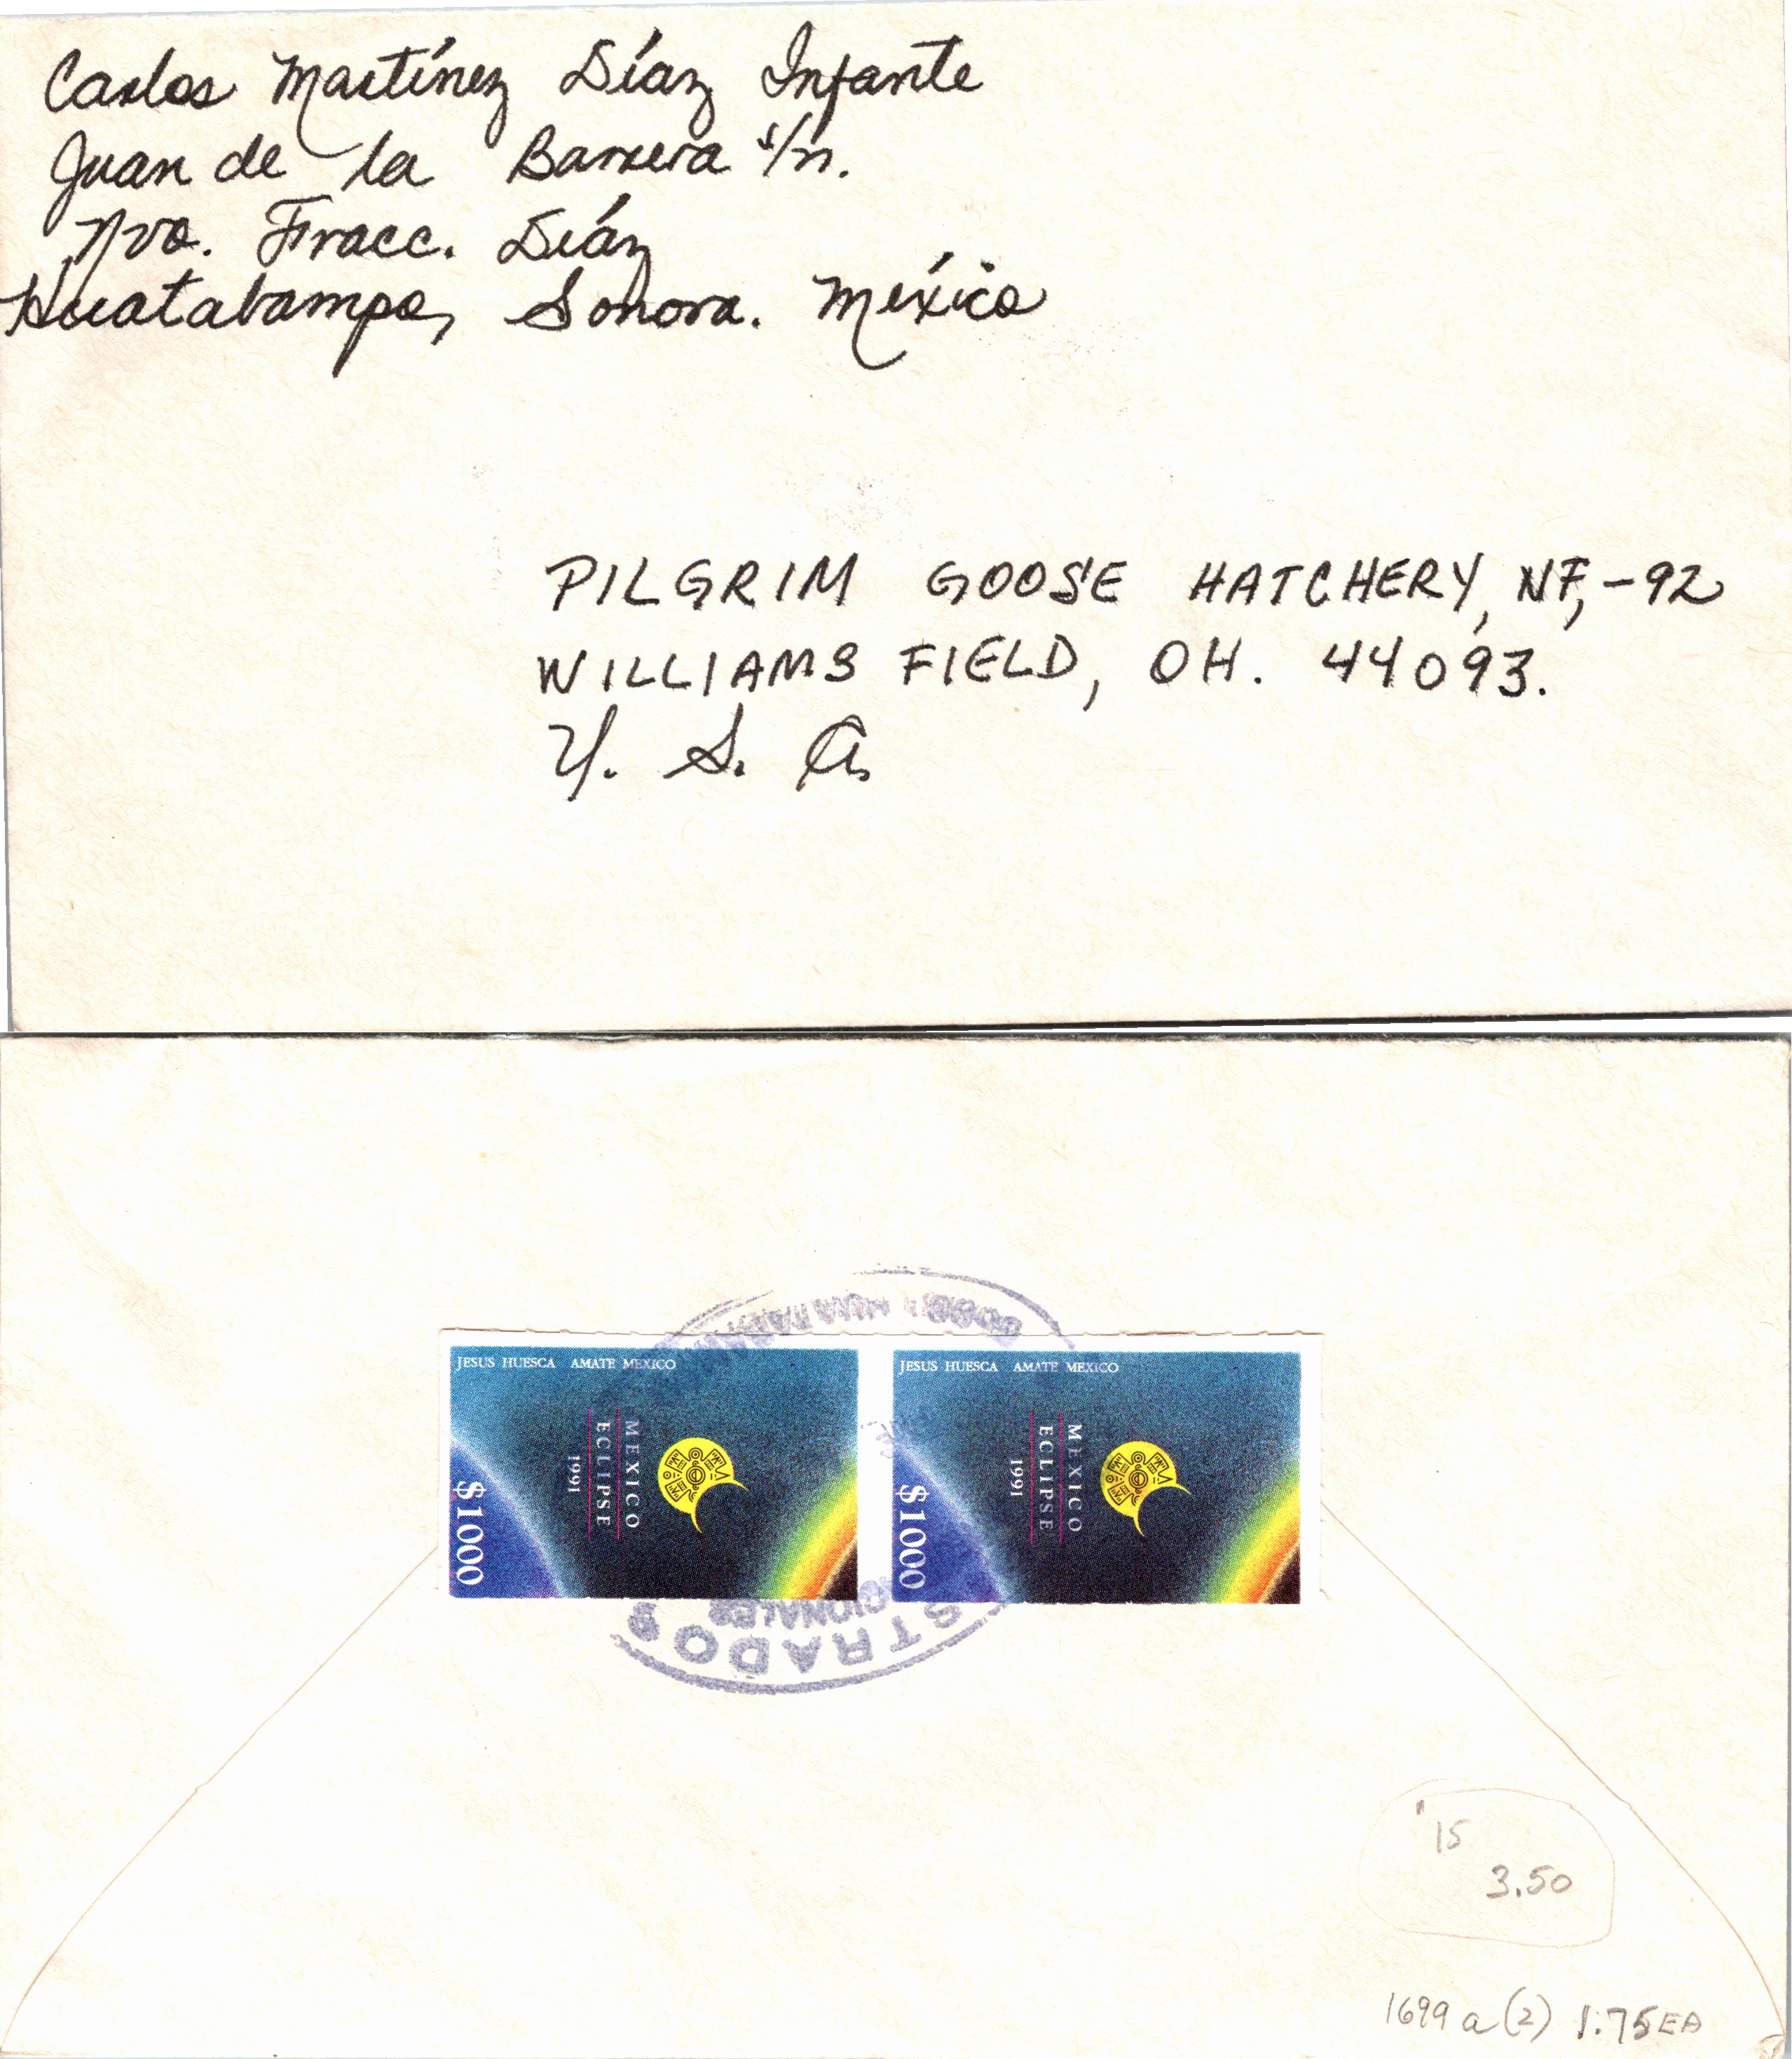 Carlos Martínez Díaz Infante
Juan de la Barrera s/n.
Nva. Fracc. Diáz
Huatabampo, Sonora. México
PILGRIM GOOSE HATCHERY, NF,-92
WILLIAMS FIELD, OH. 44093.
U. S. A.
JESUS HUESCA AMATE MEXICO
MEXICO
ECLIPSE
1991
$1000
JESUS HUESCA AMATE MEXICO
MEXICO
ECLIPSE
1991
$1000
STRADOS
CIONALES
15
3.50
1699 a (2) 1.75 EA